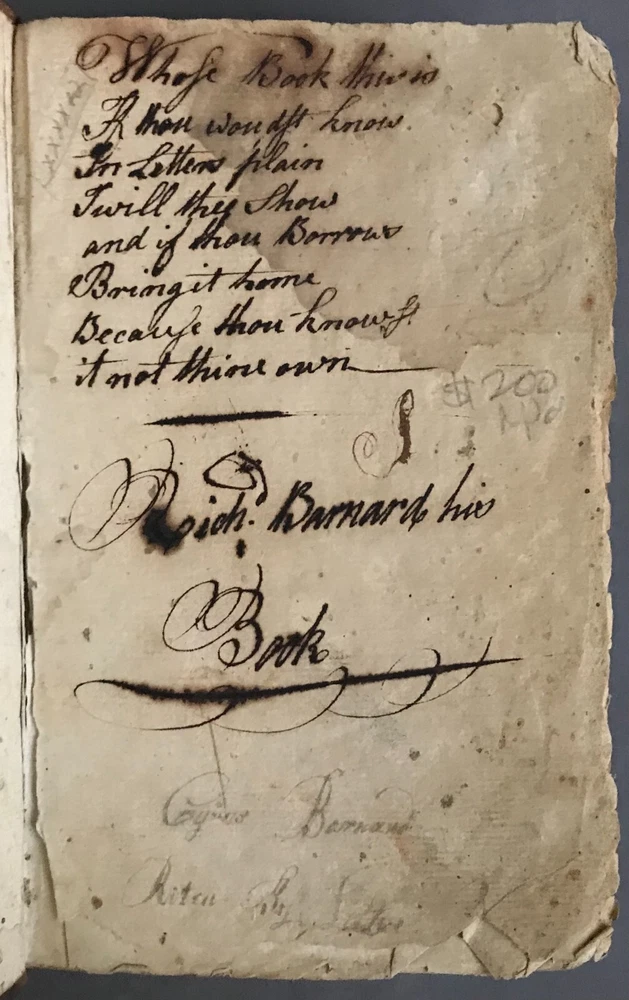 Whose Book this is
If thou woudst know
In Letters plain
I will thee Show
and if thou Borrows
Bring it home
Because thou knowst
it not thine own
$200
Richd. Barnard his
Book
Cyrus Barnard